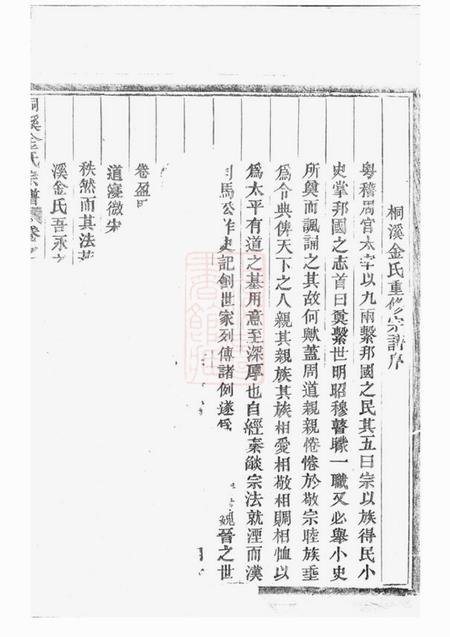 桐溪金氏重修宗譜序
粵稽周官太宰以九兩繫邦國之民其五曰宗以族得民小
史掌邦國之志首曰奠繫世明昭穆瞽矇一職又必舉小史
所奠而諷誦之其故何歟蓋周道親親惓惓於敬宗睦族垂
為令典俾天下之人親其親族其族相愛相敬相賙相恤以
為太平有道之基用意至深厚也自經秦燄宗法就湮而漢
司馬公作史記創世家列傳諸例遂
魏晉之世
卷
道寖微
秩然而其法
溪金氏吾
桐溪金氏宗譜 卷